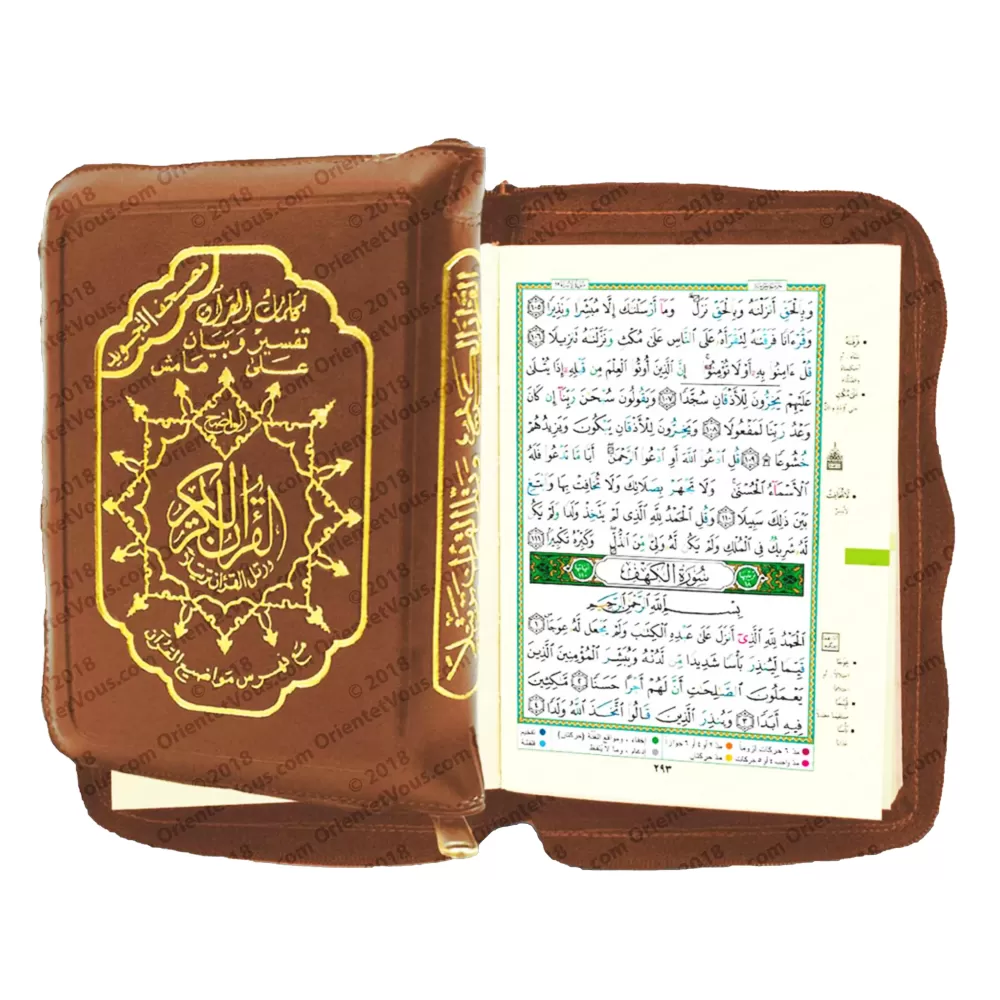 كلمات القرآن
تفسير وبيان
على هامش
مصحف التجويد
القرآن الكريم
ورتل القرآن ترتيلا
مع فهرس مواضيع القرآن
وَبِٱلۡحَقِّ أَنزَلۡنَٰهُ وَبِٱلۡحَقِّ نَزَلَۗ وَمَآ أَرۡسَلۡنَٰكَ إِلَّا مُبَشِّرٗا وَنَذِيرٗا ١٠٥
وَقُرۡءَانٗا فَرَقۡنَٰهُ لِتَقۡرَأَهُۥ عَلَى ٱلنَّاسِ عَلَىٰ مُكۡثٖ وَنَزَّلۡنَٰهُ تَنزِيلٗا ١٠٦
قُلۡ ءَامِنُواْ بِهِۦٓ أَوۡ لَا تُؤۡمِنُوٓاْۚ إِنَّ ٱلَّذِينَ أُوتُواْ ٱلۡعِلۡمَ مِن قَبۡلِهِۦٓ إِذَا يُتۡلَىٰ
عَلَيۡهِمۡ يَخِرُّونَۤ لِلۡأَذۡقَانِۤ سُجَّدٗاۤ ١٠٧ وَيَقُولُونَ سُبۡحَٰنَ رَبِّنَآ إِن كَانَ
وَعۡدُ رَبِّنَا لَمَفۡعُولٗا ١٠٨ وَيَخِرُّونَ لِلۡأَذۡقَانِ يَبۡكُونَ وَيَزِيدُهُمۡ
خُشُوعٗا ۩ ١٠٩ قُلِ ٱدۡعُواْ ٱللَّهَ أَوِ ٱدۡعُواْ ٱلرَّحۡمَٰنَۖ أَيّٗا مَّا تَدۡعُواْ فَلَهُ
ٱلۡأَسۡمَآءُ ٱلۡحُسۡنَىٰۚ وَلَا تَجۡهَرۡ بِصَلَاتِكَ وَلَا تُخَافِتۡ بِهَا وَٱبۡتَغِ
بَيۡنَ ذَٰلِكَ سَبِيلٗا ١١٠ وَقُلِ ٱلۡحَمۡدُ لِلَّهِ ٱلَّذِي لَمۡ يَتَّخِذۡ وَلَدٗا وَلَمۡ يَكُن
لَّهُۥ شَرِيكٞ فِي ٱلۡمُلۡكِ وَلَمۡ يَكُن لَّهُۥ وَلِيّٞ مِّنَ ٱلذُّلِّۖ وَكَبِّرۡهُ تَكۡبِيرَۢا ١١١
سُورَةُ الكَهْفِ
بِسۡمِ ٱللَّهِ ٱلرَّحۡمَٰنِ ٱلرَّحِيمِ
ٱلۡحَمۡدُ لِلَّهِ ٱلَّذِيٓ أَنزَلَ عَلَىٰ عَبۡدِهِ ٱلۡكِتَٰبَ وَلَمۡ يَجۡعَل لَّهُۥ عِوَجَاۜ ١
قَيِّمٗا لِّيُنذِرَ بَأۡسٗا شَدِيدٗا مِّن لَّدُنۡهُ وَيُبَشِّرَ ٱلۡمُؤۡمِنِينَ ٱلَّذِينَ
يَعۡمَلُونَ ٱلصَّٰلِحَٰتِ أَنَّ لَهُمۡ أَجۡرًا حَسَنٗا ٢ مَّٰكِثِينَ
فِيهِ أَبَدٗا ٣ وَيُنذِرَ ٱلَّذِينَ قَالُواْ ٱتَّخَذَ ٱللَّهُ وَلَدٗا ٤
مدّ ٦ حركات لزوماً مدّ ٢ أو ٤ أو ٦ جوازاً إخفاء، ومواقع الغنّة (حركتان) تفخيم
مدّ واجب ٤ أو ٥ حركات مدّ حركتان إدغام، وما لا يُلفظ قلقلة
٢٩٣
© 2018 OrientetVous.com